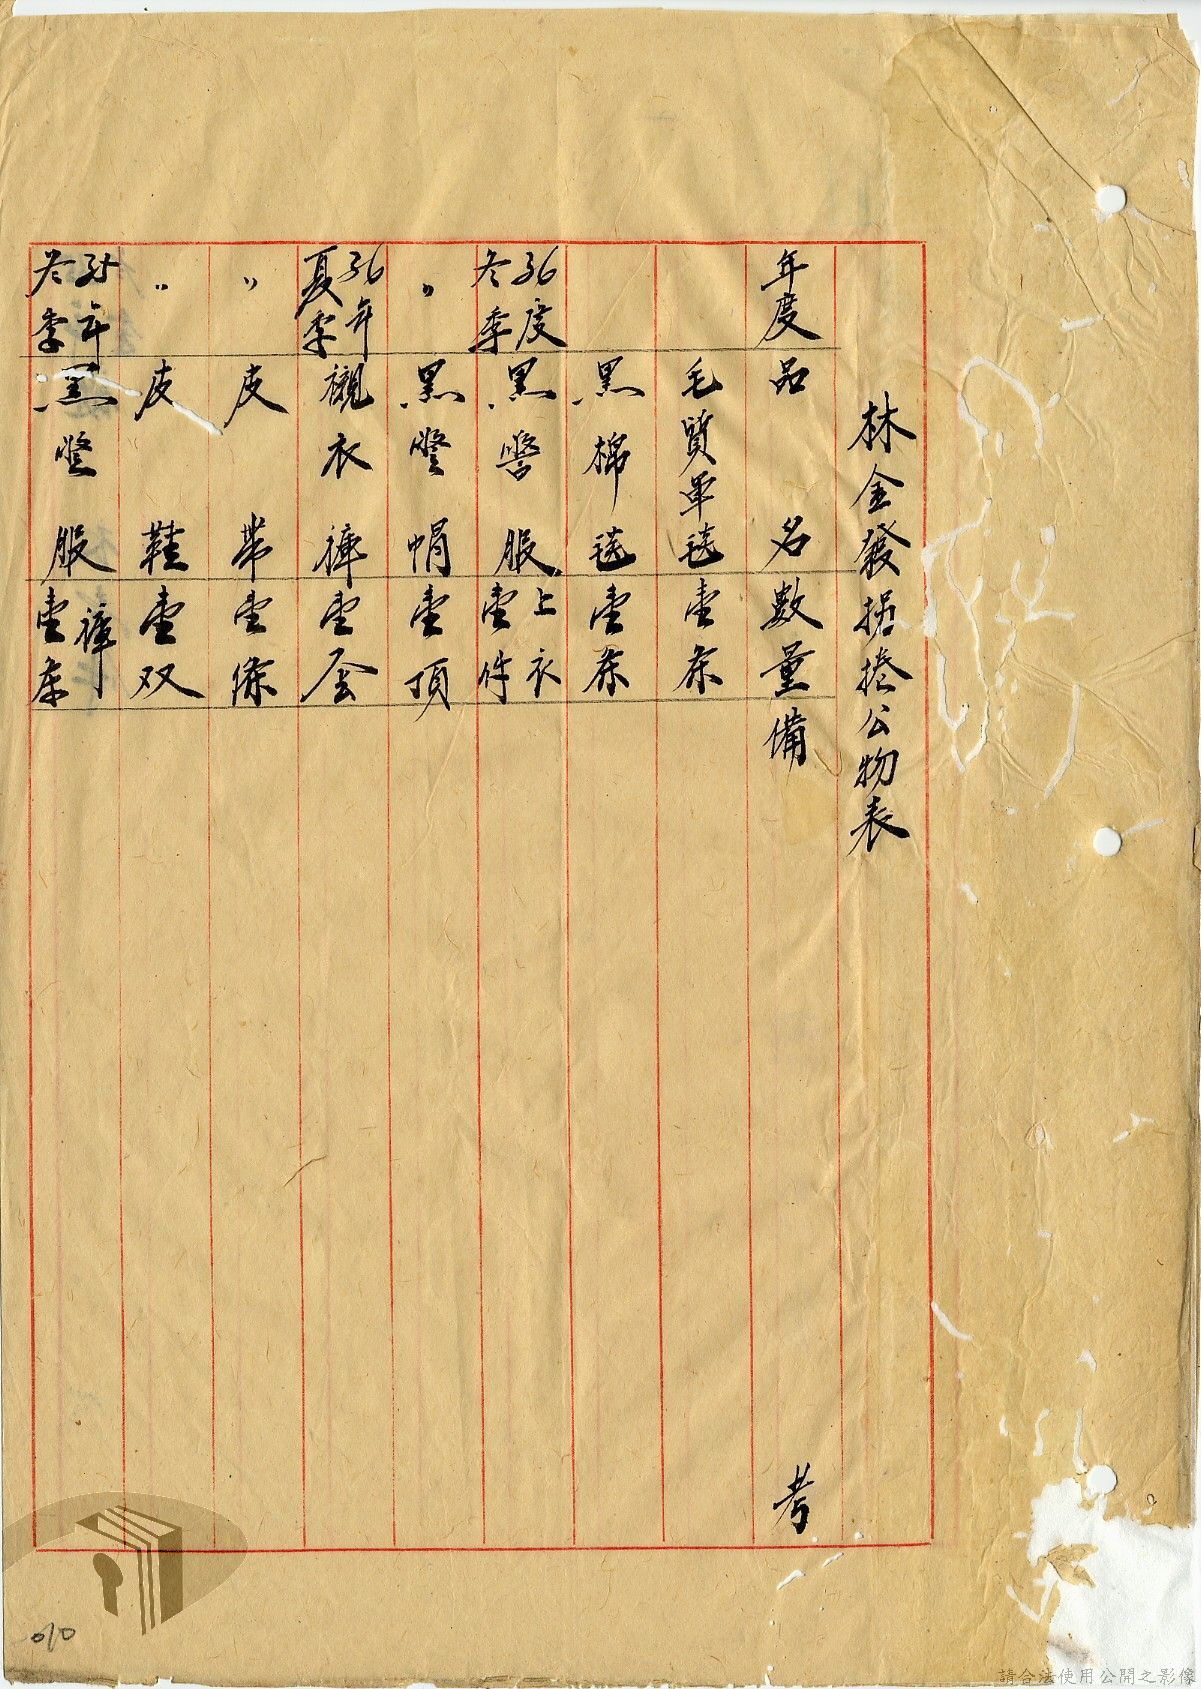 林金發拐捲公物表
年度 品名 數量 備考
毛質軍毯 壹条
黑棉毯 壹条
36度冬季 黑警服 上衣壹件
〃 黑警帽 壹頂
36年夏季 襯衣褲 壹套
〃 皮帶 壹條
〃 皮鞋 壹双
35年冬季 黑警服 褲壹条
010
請合法使用公開之影像